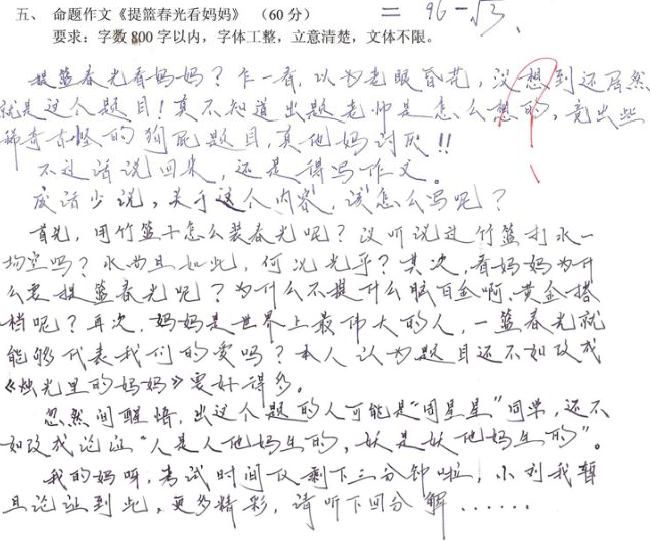 五、 命题作文《提篮春光看妈妈》 (60分) = 96-√3、
要求：字数 800 字以内，字体工整，立意清楚，文体不限。
提篮春光看妈妈？乍一看，以为老眼昏花，没想到还居然
就是这个题目！真不知道出题老师是怎么想的，竟出些
稀奇古怪的狗屁题目，真他妈讨厌!!
不过话说回来，还是得写作文。
废话少说，关于这个内容，该怎么写呢？
首先，用竹篮子怎么装春光呢？没听说过竹篮打水一
场空吗？水尚且如此，何况光乎？其次，看妈妈为什
么要提篮春光呢？为什么不提什么脑白金啊，黄金搭
档呢？再次，妈妈是世界上最伟大的人，一篮春光就
能够代表我们的爱吗？本人认为题目还不如改成
《烛光里的妈妈》要好得多。
忽然间醒悟，出这个题的人可能是“周星星”同学，还不
如改成论证“人是人他妈生的，妖是妖他妈生的”。
我的妈呀，考试时间仅剩下三分钟啦，小刘我暂
且论证到此，更多精彩，请听下回分解......